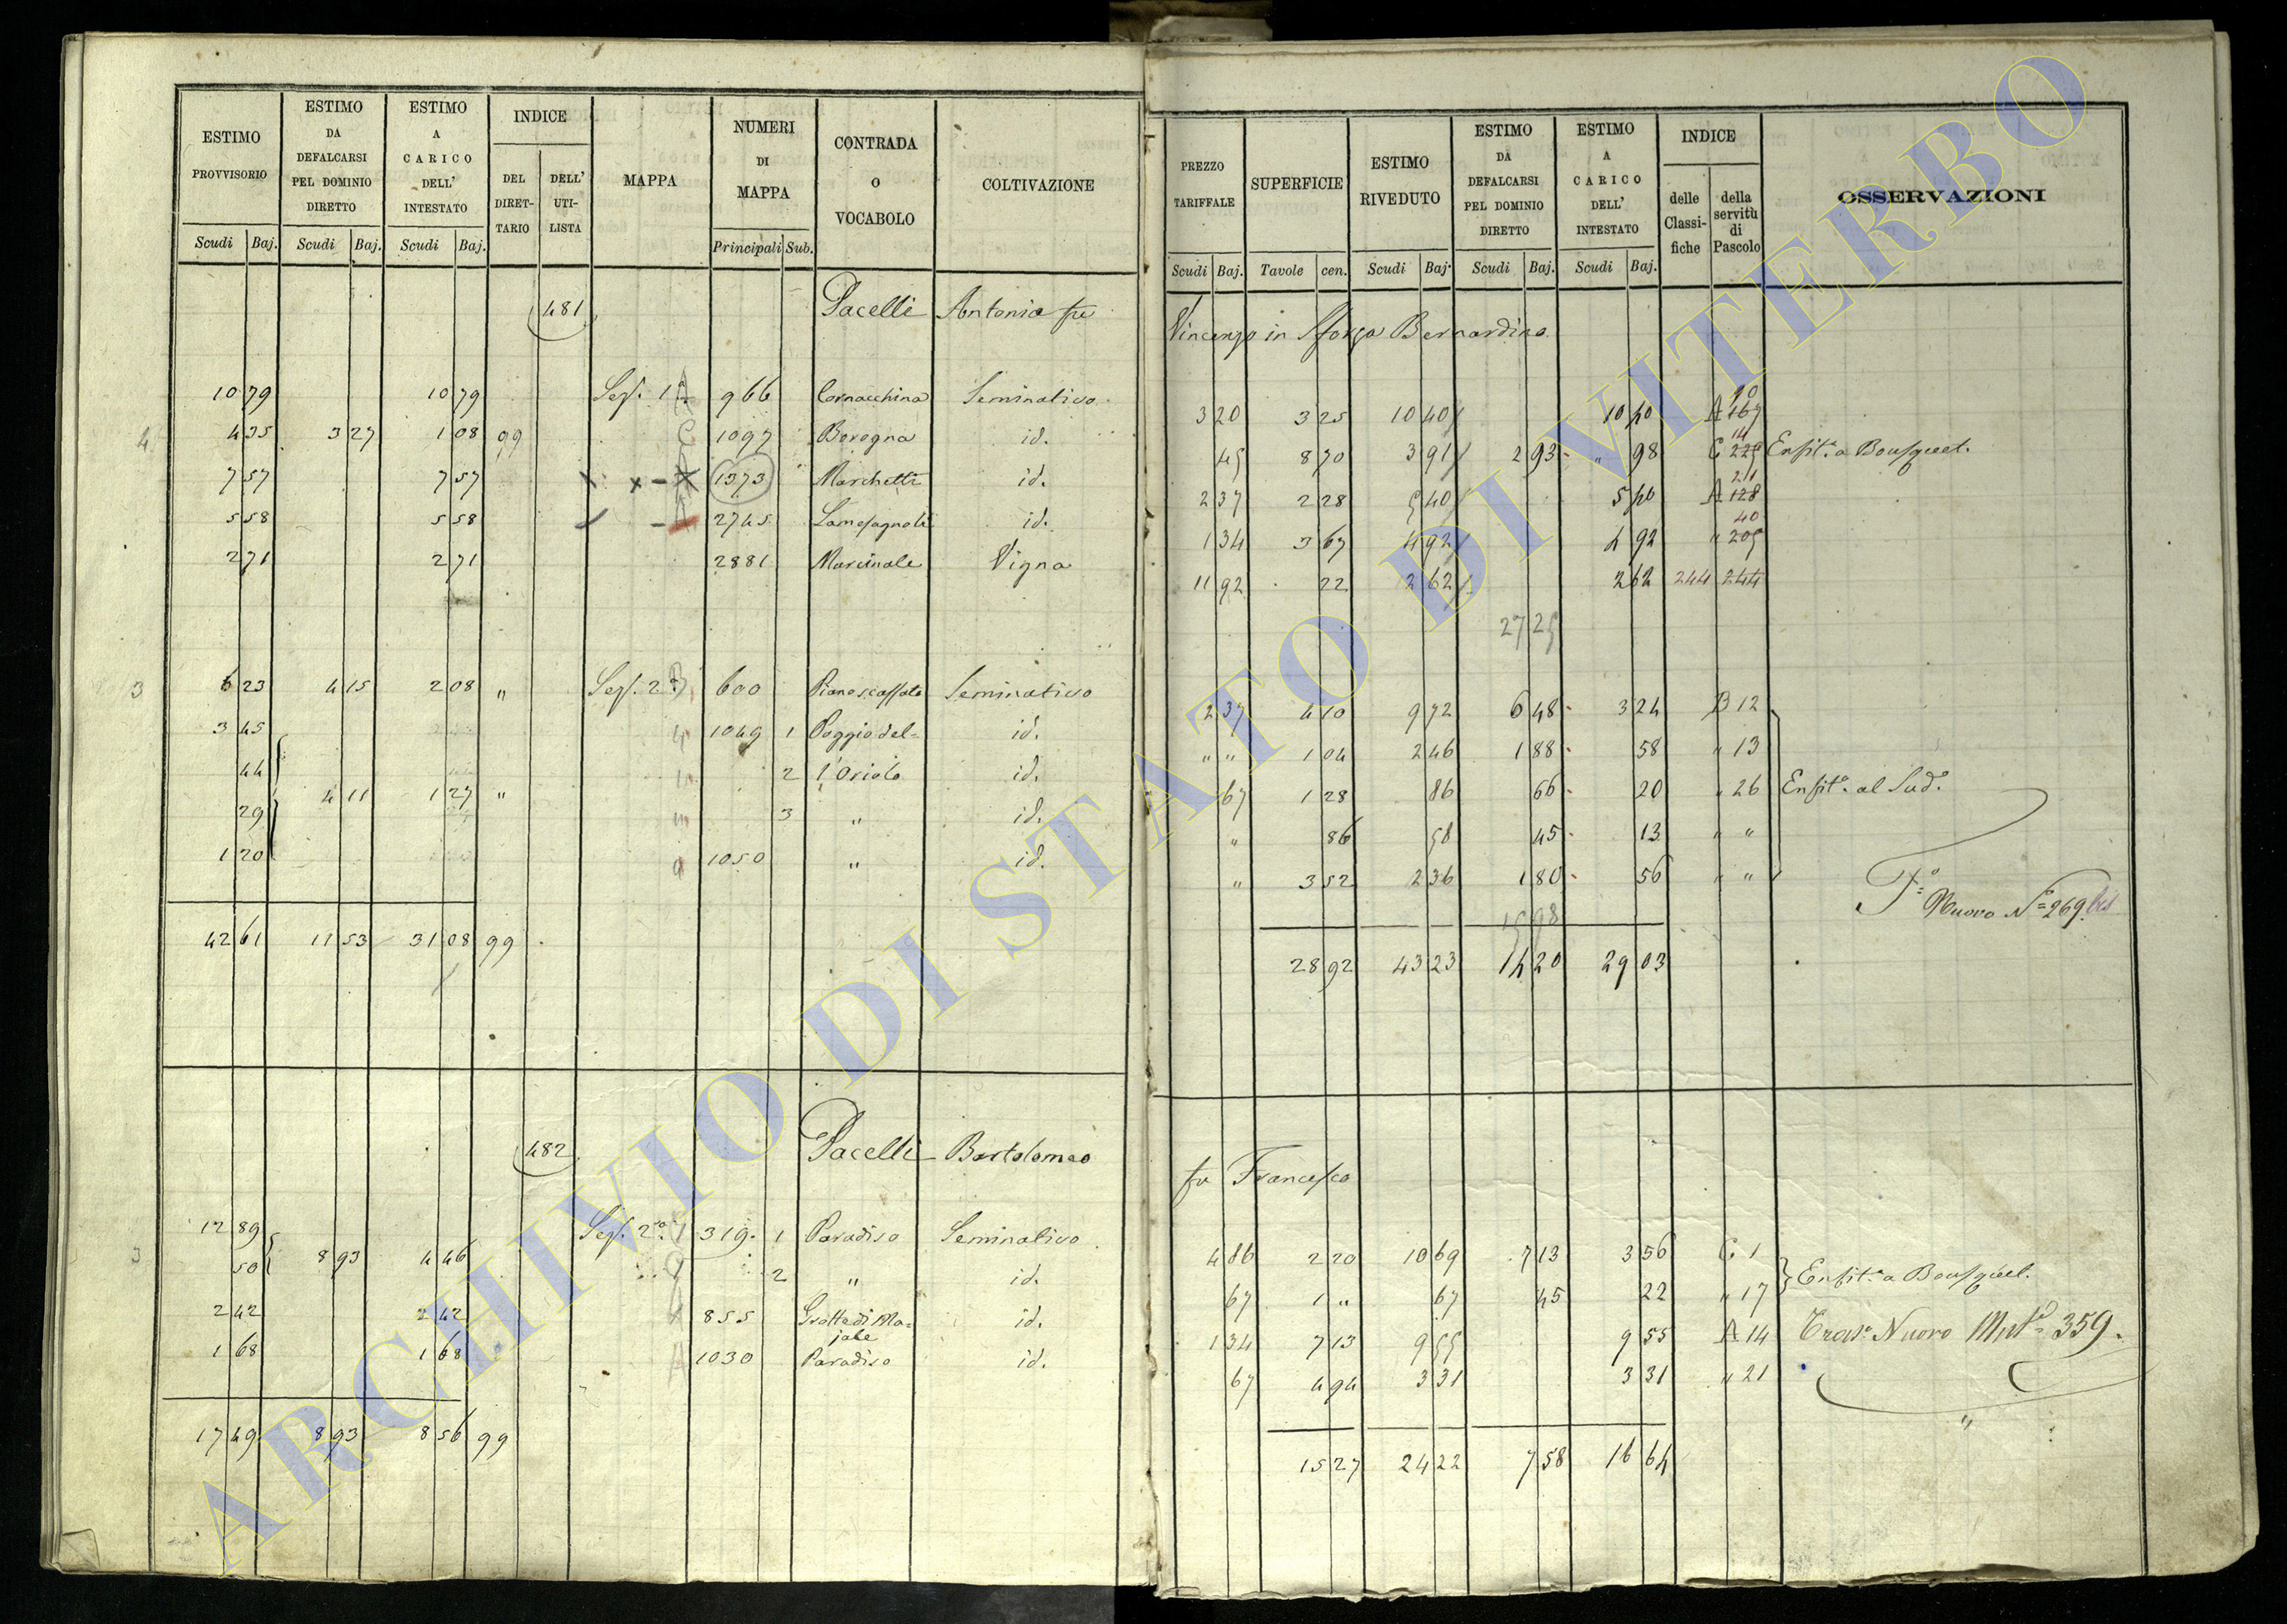 ESTIMO PROVVISORIO | ESTIMO DA DEFALCARSI PEL DOMINIO DIRETTO | ESTIMO A CARICO DELL' INTESTATO | INDICE DEL DIRETTARIO | DELL' UTILISTA | MAPPA | NUMERI DI MAPPA | CONTRADA O VOCABOLO | COLTIVAZIONE | PREZZO TARIFFALE | SUPERFICIE | ESTIMO RIVEDUTO | ESTIMO DA DEFALCARSI PEL DOMINIO DIRETTO | ESTIMO A CARICO DELL' INTESTATO | INDICE delle Classifiche | della servitù di Pascolo | OSSERVAZIONI
Scudi Baj. | Scudi Baj. | Scudi Baj. | Principali Sub. | Scudi Baj. | Tavole cen. | Scudi Baj. | Scudi Baj. | Scudi Baj.
481 Pacelli Antonia fu Vincenzo in Sforza Bernardino
10 79 | 10 79 | Sez. 1ª | 966 | Cornacchina | Seminativo | 3 20 | 3 25 | 10 40 | 10 40 | A 167 90
4 | 4 35 | 3 27 | 1 08 | 99 | C | 1097 | Boregna | id. | 45 | 8 70 | 3 91 | 2 93 | " 98 | C 225 14 | Enfit. a Bousquet.
7 57 | 7 57 | 1373 | Marchetti | id. | 2 37 | 2 28 | 5 40 | 5 40 | A 128 211
5 58 | 5 58 | 2745 | id. | 1 34 | 3 67 | 4 92 | 4 92 | " 205 40
2 71 | 2 71 | 2881 | Marcinale | Vigna | 11 92 | 22 | 2 62 | 2 62 | 244 244
27 25
3 | 6 23 | 4 15 | 2 08 | " | Sez. 2ª | 600 | Piano scaffate | Seminativo | 2 37 | 4 10 | 9 72 | 6 48 | 3 24 | B 12
3 45 | 1049 1 | Poggio del= | id. | " " | 1 04 | 2 46 | 1 88 | 58 | " 13
44 | 2 | l'Oriolo | id. | 67 | 1 28 | 86 | 66 | 20 | " 26 | Enfit. al Sud.
4 11 | 1 27 | "
29 | 3 | " | id. | " | 86 | 58 | 45 | 13 | " "
1 20 | 1050 | " | id. | " | 3 52 | 2 36 | 1 80 | 56 | " "
Nuovo Nº 269 bis
15 98
42 61 | 11 53 | 31 08 | 99 | 28 92 | 43 23 | 14 20 | 29 03
482 Pacelli Bartolomeo fu Francesco
12 89 | Sez. 2ª | 319. 1 | Paradiso | Seminativo | 4 86 | 2 20 | 10 69 | 7 13 | 3 56 | C 1
3 | 8 93 | 4 46 | Enfit. a Bousquet.
50 | 2 | " | id. | 67 | 1 " | 67 | 45 | 22 | " 17
2 42 | 2 42 | 855 | Grotte di Ma=jale | id. | 1 34 | 7 13 | 9 55 | 9 55 | A 14 | Nuovo 359.
1 68 | 1 68 | 1030 | Paradiso | id. | 67 | 4 94 | 3 31 | 3 31 | " 21
17 49 | 8 93 | 8 56 | 99 | 15 27 | 24 22 | 7 58 | 16 64
ARCHIVIO DI STATO DI VITERBO